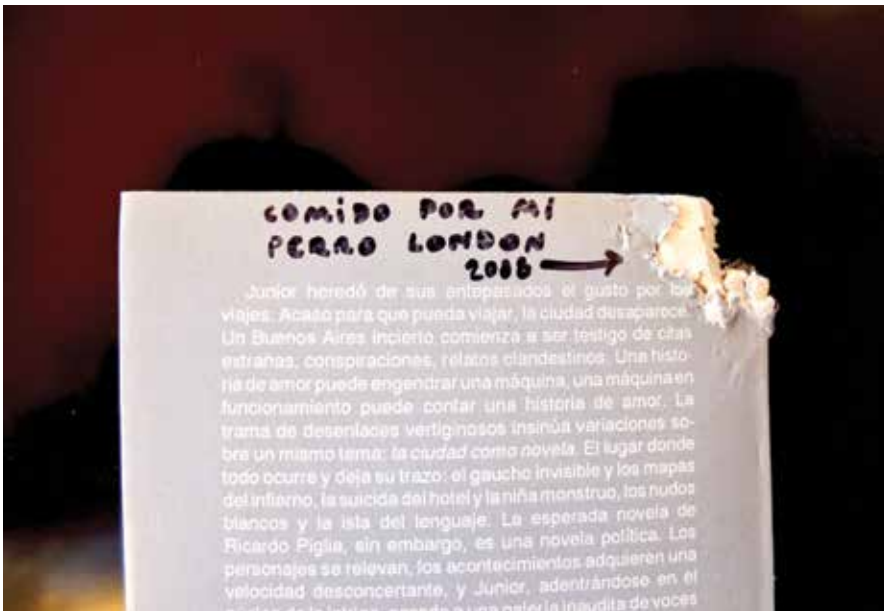 COMIDO POR MI
PERRO LONDON
2008
Junior heredó de sus antepasados el gusto por los
viajes. Acaso para que pueda viajar, la ciudad desaparece.
Un Buenos Aires incierto comienza a ser testigo de citas
extrañas, conspiraciones, relatos clandestinos. Una histo-
ria de amor puede engendrar una máquina, una máquina en
funcionamiento puede contar una historia de amor. La
trama de desenlaces vertiginosos insinúa variaciones so-
bre un mismo tema: la ciudad como novela. El lugar donde
todo ocurre y deja su trazo: el gaucho invisible y los mapas
del infierno, la suicida del hotel y la niña monstruo, los nudos
blancos y la isla del lenguaje. La esperada novela de
Ricardo Piglia, sin embargo, es una novela política. Los
personajes se relevan, los acontecimientos adquieren una
velocidad desconcertante, y Junior, adentrándose en el
de la intriga, accede a una galería inaudita de voces